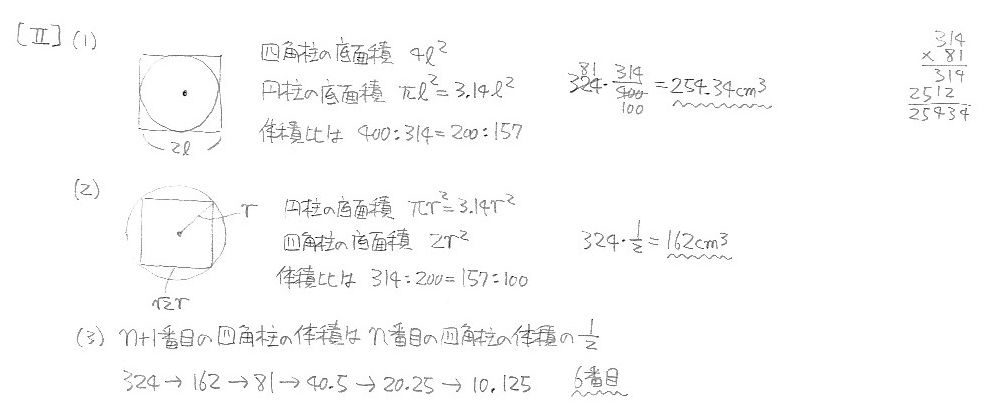 [II] (1)
四角柱の底面積 4ℓ²
円柱の底面積 πℓ²=3.14ℓ²
体積比は 400:314=200:157
2ℓ
81
324・314/400=254.34cm³
100
314
×81
314
2512
25434
(2)
r
√2r
円柱の底面積 πr²=3.14r²
四角柱の底面積 2r²
体積比は 314:200=157:100
324・1/2=162cm³
(3) n+1番目の四角柱の体積はn番目の四角柱の体積の1/2
324→162→81→40.5→20.25→10.125 6番目